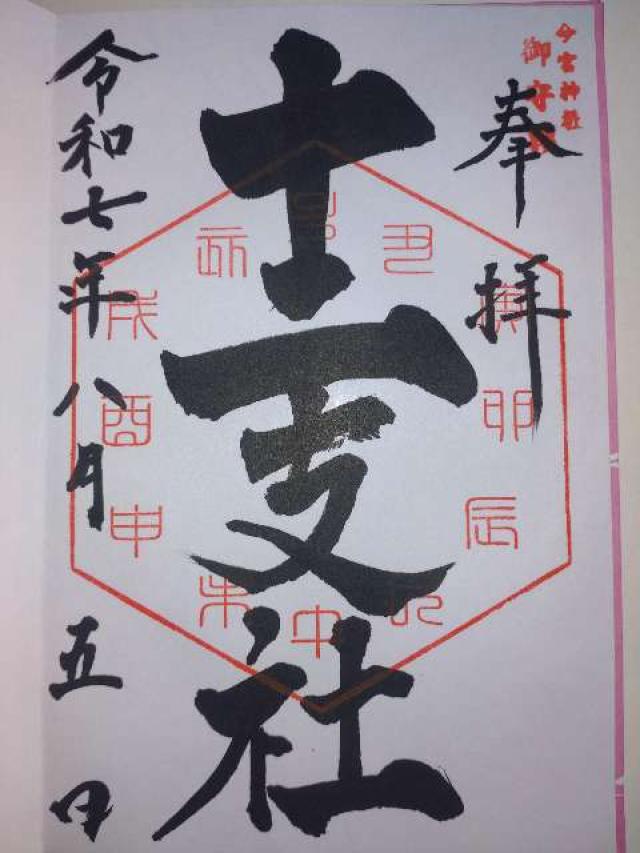 今宮神社
御守
奉拝
十二支社
丑
寅
卯
辰
巳
午
未
申
酉
戌
亥
令和七年八月五日